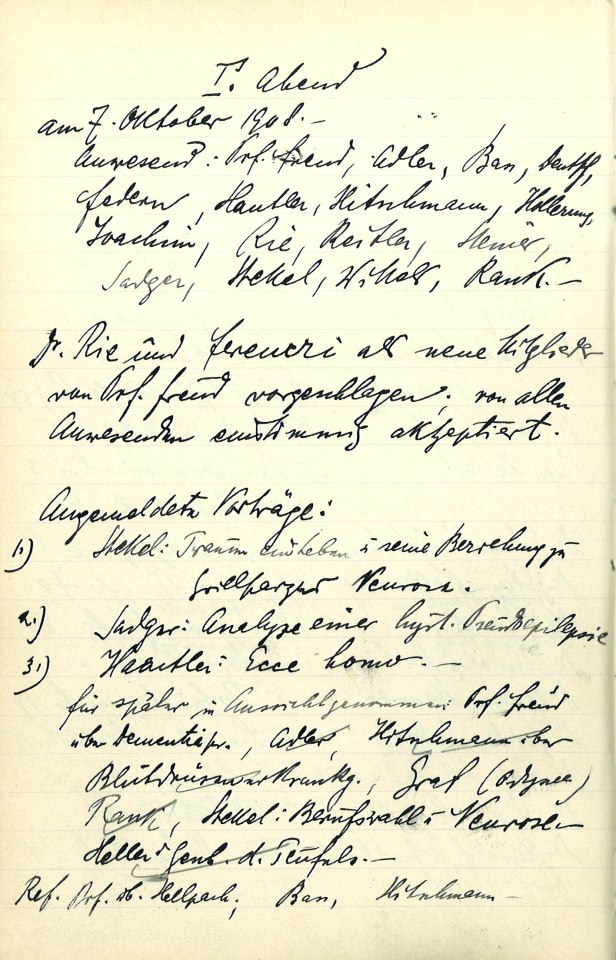 I. Abend
am 7. Oktober 1908.-
Anwesend: Prof. Freud, Adler, Bass, Deutsch,
Federn, Häutler, Hitschmann, Hollerung,
Joachim, Rie, Reitler, Steiner,
Sadger, Stekel, Wittels, Rank.-
Dr. Rie und Ferenczi als neue Mitglieder
von Prof. Freud vorgeschlagen; von allen
Anwesenden einstimmig akzeptiert.
Angemeldete Vorträge:
1.) Stekel: Traum ein Leben u seine Beziehung zu
Grillparzers Neurose.
2.) Sadger: Analyse einer hyst. Pseudoepilepsie
3.) Haeutler: Ecce homo.-
für später in Aussicht genommen: Prof. Freud
über Dementia pr., Adler, Hitschmann über
Blutdrüsenerkrankg., Graf (Odyssee)
Rank, Stekel: Berufswahl u Neurose-
Heller: d. Teufels.-
Ref. Prof. üb. Hellpach; Bass, Hitschmann-